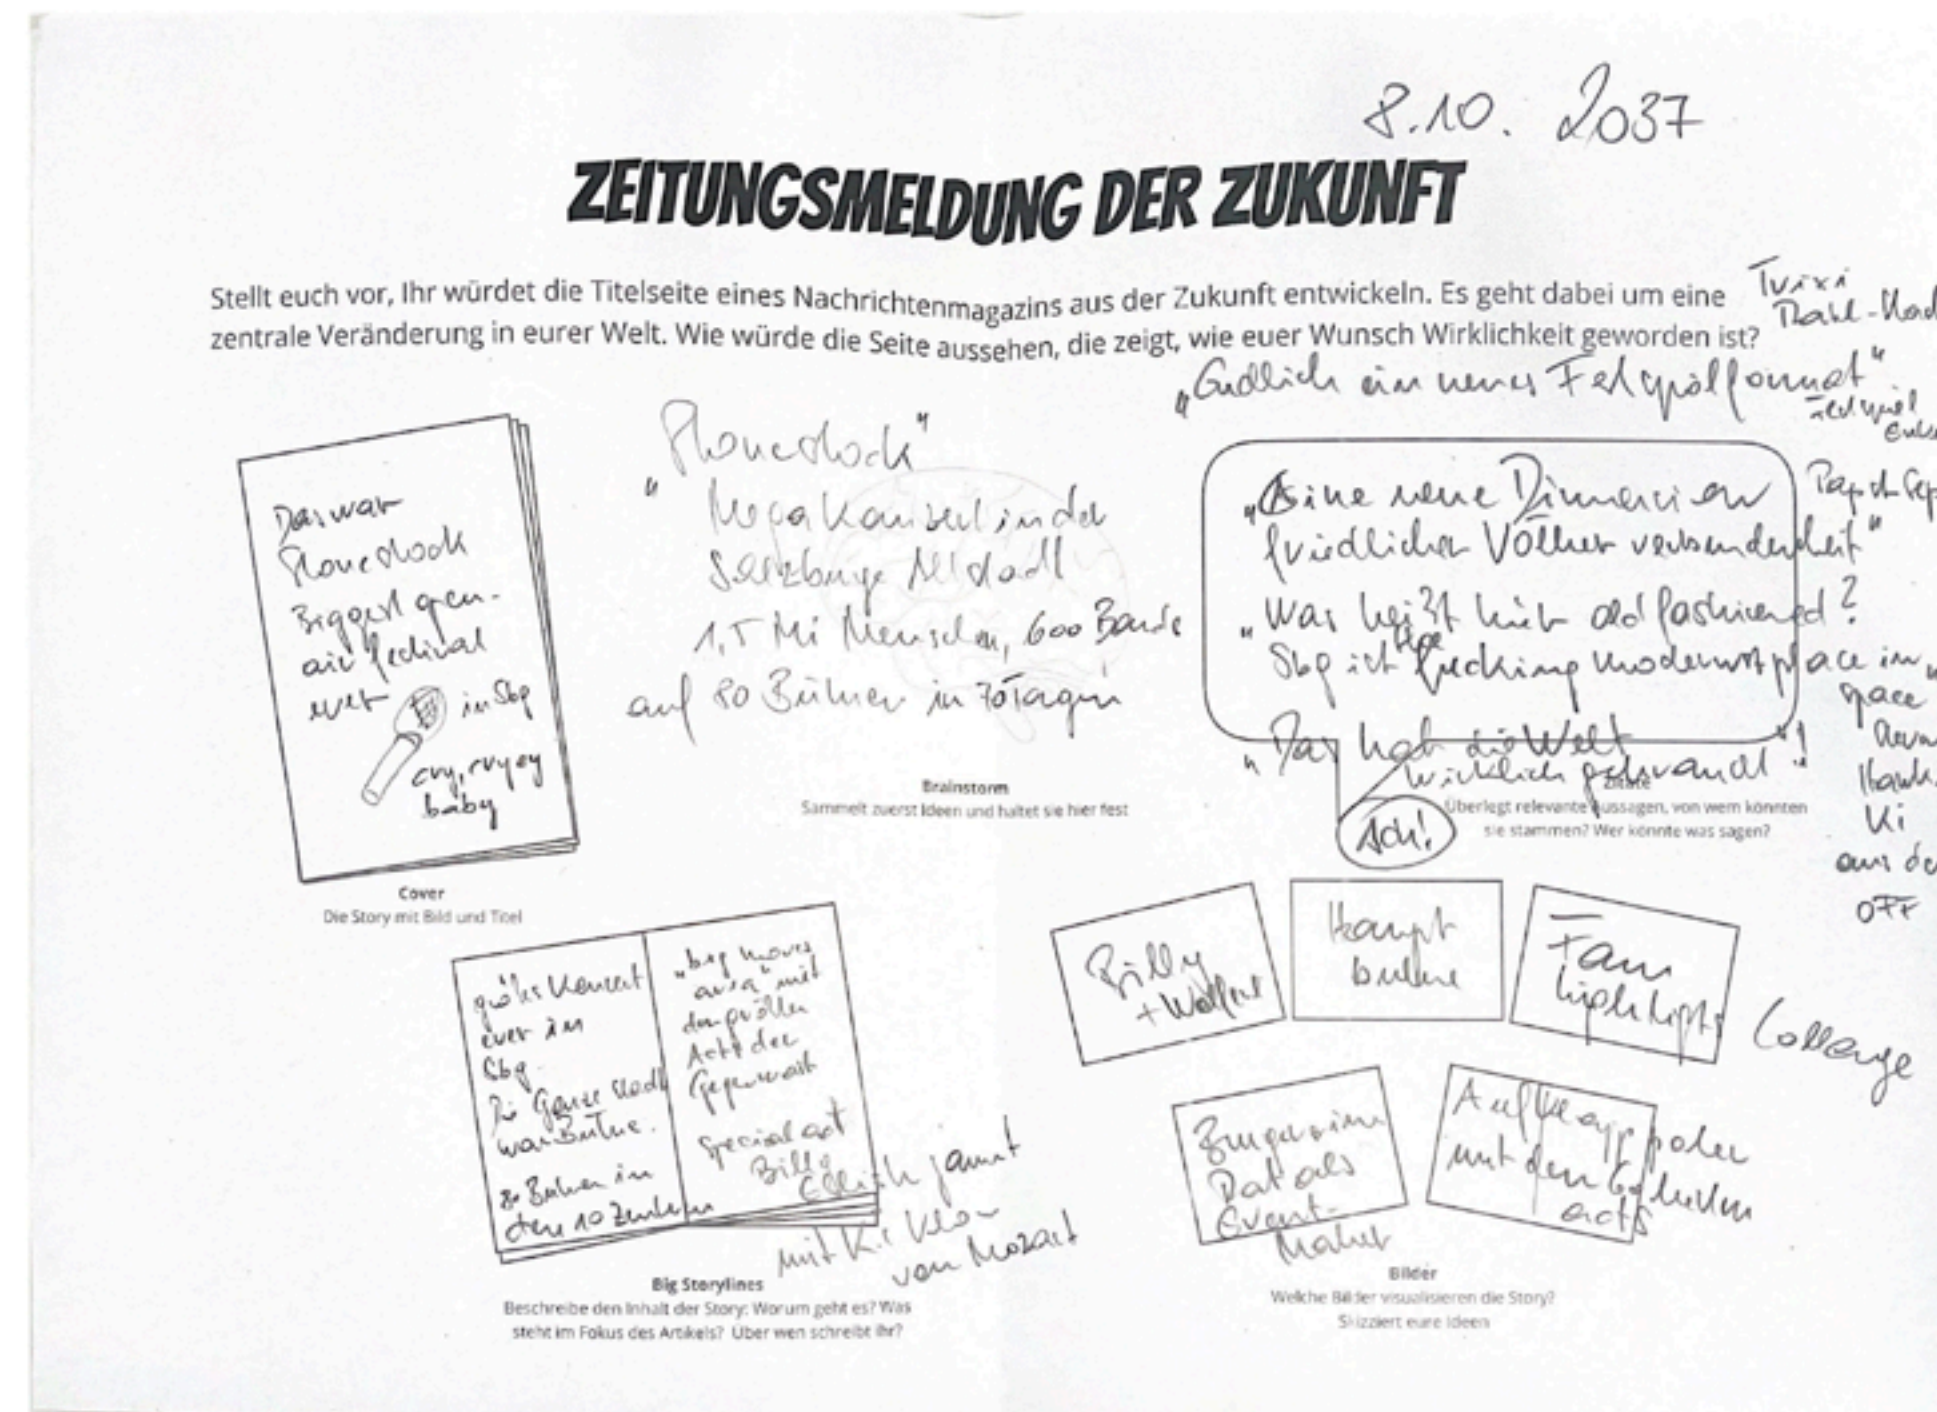 8.10. 2037
ZEITUNGSMELDUNG DER ZUKUNFT
Stellt euch vor, Ihr würdet die Titelseite eines Nachrichtenmagazins aus der Zukunft entwickeln. Es geht dabei um eine
zentrale Veränderung in eurer Welt. Wie würde die Seite aussehen, die zeigt, wie euer Wunsch Wirklichkeit geworden ist?
Trixi
„Endlich ein neues
Das war
Biggest open-
air festival
ever in Sbg
cry, cry ey
baby
Cover
Die Story mit Bild und Titel
Mega Konzert in der
Salzburger Altstadt
1,5 Mi Menschen, 600 Bands
auf 80 Bühnen in 70 Tagen
Brainstorm
Sammelt zuerst Ideen und haltet sie hier fest
„Eine neue Dimension
friedlicher Völkerverbundenheit"
„Was heißt hier old fashioned?
Sbg ist the fucking modernst place in
space
„Das hat die Welt
wirklich gebraucht"!
Ach!
Ki
aus de
OFF
Zitate
Überlegt relevante Aussagen, von wem könnten
sie stammen? Wer könnte was sagen?
größtes Konzert
ever in
Sbg.
Die Ganze Stadt
war Bühne.
80 Bühnen in
den 10 Zentren
"big moves
area" mit
den größten
Acts der
Gegenwart
Special act
Billy
Eilish jammt
mit K.I. Klon
von Mozart
Big Storylines
Beschreibe den Inhalt der Story: Worum geht es? Was
steht im Fokus des Artikels? Über wen schreibt ihr?
Billy
Haupt
bühne
Fan
highlights
Collage
Bürgerinnen
Rat als
Event-
Maker
Aufklapp poster
mit den
acts
Bilder
Welche Bilder visualisieren die Story?
Skizziert eure Ideen